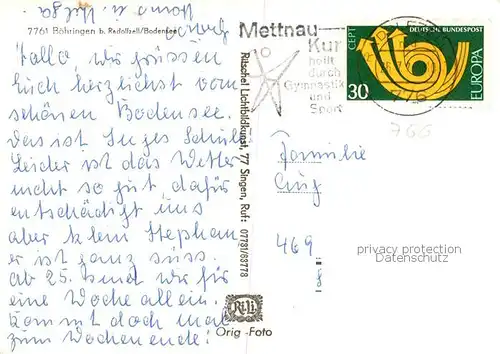 7761 Böhringen b. Radolfzell/Bodensee
Hallo, wir grüssen
euch herzlichst vom
schönen Bodensee.
Das ist Inges Schule!
Leider ist das Wetter
nicht so gut, dafür
entschädigt uns
aber klein Stephan
er ist ganz süss.
Ab 25. sind wir für
eine Woche allein.
Kommt doch mal
zum Wochenende!
Mama u. Helga
Ritschel Lichtbildkunst, 77 Singen, Ruf: 07731/63778
RiLi
Orig.-Foto
Mettnau
Kur
heilt
durch
Gymnastik
und
Sport
CEPT
DEUTSCHE BUNDESPOST
30
EUROPA
766
Familie
469
privacy protection
Datenschutz